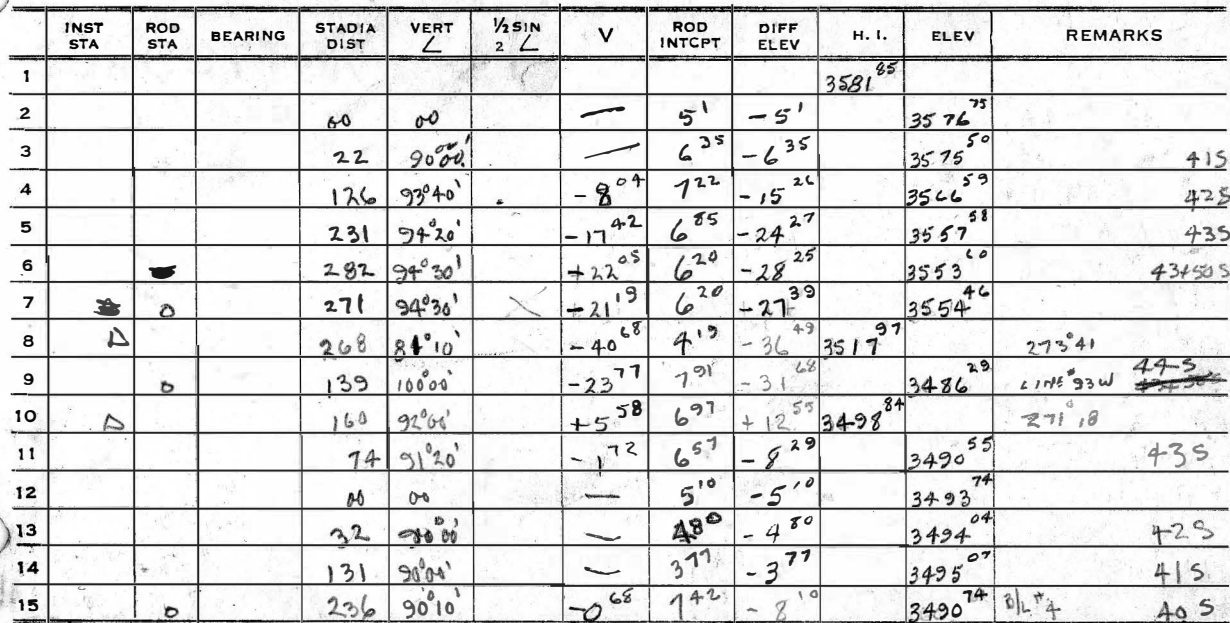 INST STA ROD STA BEARING STADIA DIST VERT ∠ ½ SIN 2 ∠ V ROD INTCPT DIFF ELEV H. I. ELEV REMARKS
1 3581 85
2 00 00 — 5 1 - 5 1 3576 75
3 22 90°00' — 6 35 - 6 35 3575 50 41S
4 126 93°40' - 8 04 7 22 - 15 26 3566 59 42S
5 231 94°20' - 17 42 6 85 - 24 27 3557 58 43S
6 282 94°30' + 22 05 6 20 - 28 25 3553 60 43+50S
7 o 271 94°30' - 21 19 6 20 - 27 39 3554 46
8 Δ 268 81°10' - 40 68 4 19 - 36 49 3517 97 273°41
9 o 139 100°00' - 23 77 7 91 - 31 68 3486 29 LINE #93W 44-S
10 Δ 160 92°00' + 5 58 6 97 + 12 55 3498 84 271°18
11 74 91°20' - 1 72 6 57 - 8 29 3490 55 43S
12 00 00 — 5 10 - 5 10 3493 74
13 32 90°00' — 4 80 - 4 80 3494 04 42S
14 131 90°00' — 3 77 - 3 77 3495 07 41S
15 o 236 90°10' - 0 68 7 42 - 8 10 3490 74 B/L #4 40S